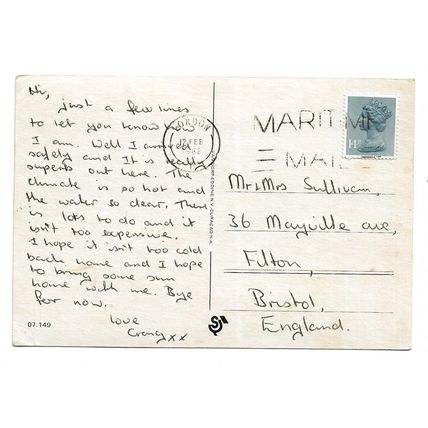 Hi,
just a few lines
to let you know how
I am. Well I arrived
safely and It is really
superb out here. The
climate is so hot and
the water so clear. There
is lots to do and it
isn't too expensive.
I hope it isn't too cold
back home and I hope
to bring some sun
home with me. Bye
for now.
love
Craig xx
07.149
LONDON
FEB
MARITIME
MAIL
Mr + Mrs Sullivan,
36 Mayville ave,
Filton,
Bristol,
England.